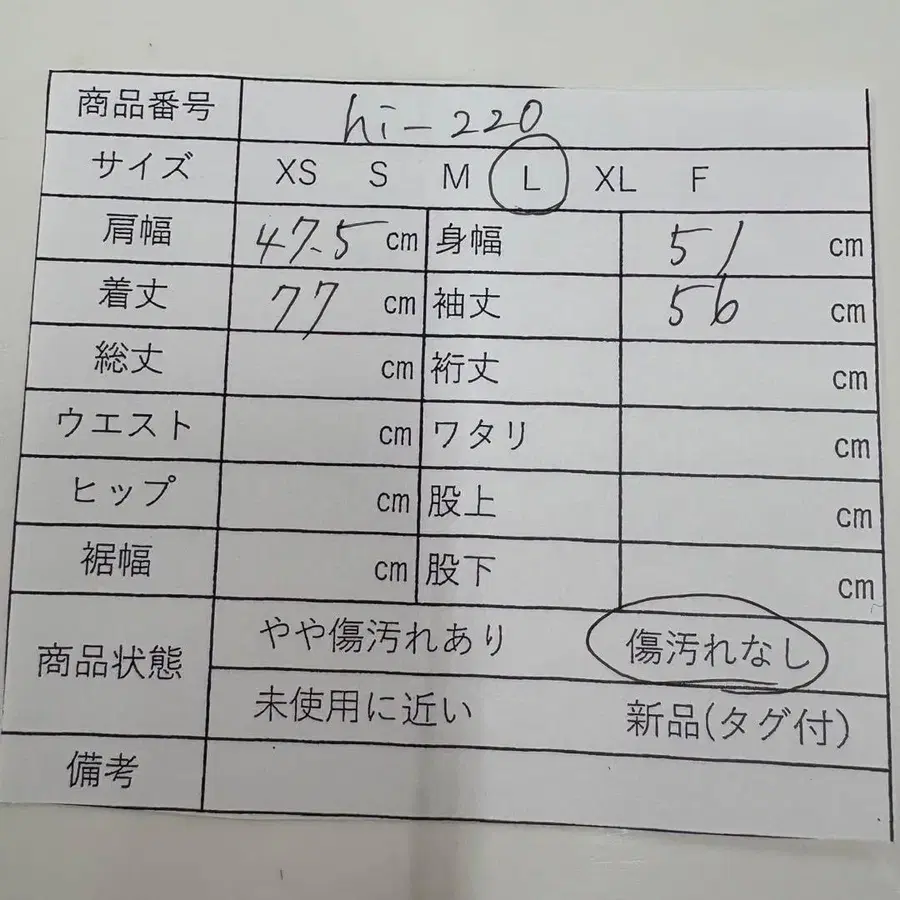 商品番号 hi-220
サイズ XS S M L XL F
肩幅 47.5 cm 身幅 51 cm
着丈 77 cm 袖丈 56 cm
総丈 cm 裄丈 cm
ウエスト cm ワタリ cm
ヒップ cm 股上 cm
裾幅 cm 股下 cm
商品状態 やや傷汚れあり 傷汚れなし
未使用に近い 新品(タグ付)
備考